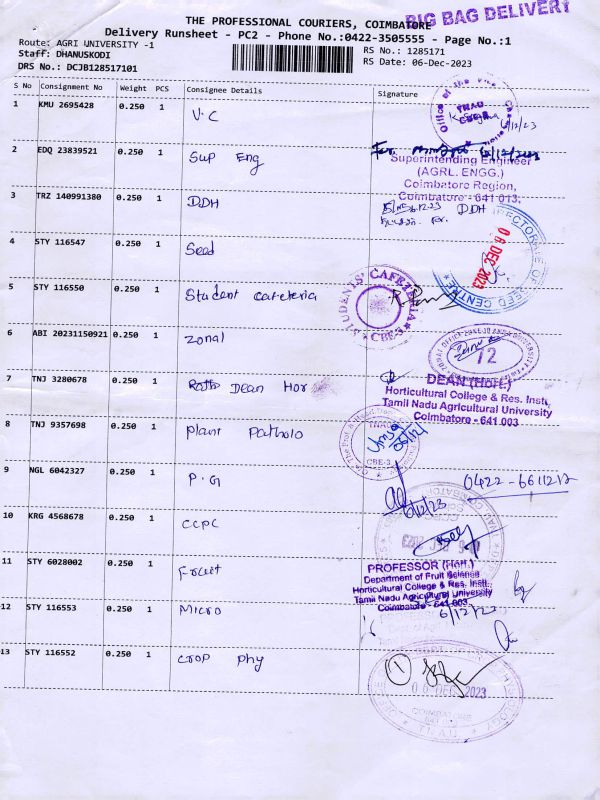 THE PROFESSIONAL COURIERS, COIMBATORE
BIG BAG DELIVERY
Delivery Runsheet - PC2 - Phone No.:0422-3505555 - Page No.:1
Route: AGRI UNIVERSITY -1
RS No.: 1285171
Staff: DHANUSKODI
RS Date: 06-Dec-2023
DRS No.: DCJB128517101
S No Consignment No Weight PCS Consignee Details Signature
1 KMU 2695428 0.250 1 V.C
Office of the Vice
TNAU
6/12/23
2 EDQ 23839521 0.250 1 Sup Eng
For
6/12/2023
Superintending Engineer
(AGRL. ENGG.)
Coimbatore Region,
Coimbatore - 641 013.
3 TRZ 140991380 0.250 1 DDH
DDH
4 STY 116547 0.250 1 Seed
DIRECTORATE OF SEED CENTRE
06 DEC 2023
5 STY 116550 0.250 1 Student cafeteria
STUDENTS' CAFETERIA
CBE-3
6 ABI 20231150921 0.250 1 zonal
12
7 TNJ 3280678 0.250 1 Dean Hor
DEAN (Hort.)
Horticultural College & Res. Insti.,
Tamil Nadu Agricultural University
Coimbatore - 641 003
8 TNJ 9357698 0.250 1 plant Patholo
TNAU
CBE-3.
06/12/
9 NGL 6042327 0.250 1 P.G
0422-6611212
6/12/23
10 KRG 4568678 0.250 1 CCPC
11 STY 6028002 0.250 1 Fruit
PROFESSOR (Hort.)
Department of Fruit Science
Horticultural College & Res. Insti.,
Tamil Nadu Agricultural University
Coimbatore - 641 003
12 STY 116553 0.250 1 Micro
6/12/23
13 STY 116552 0.250 1 crop phy
1
06 DEC 2023
COIMBATORE